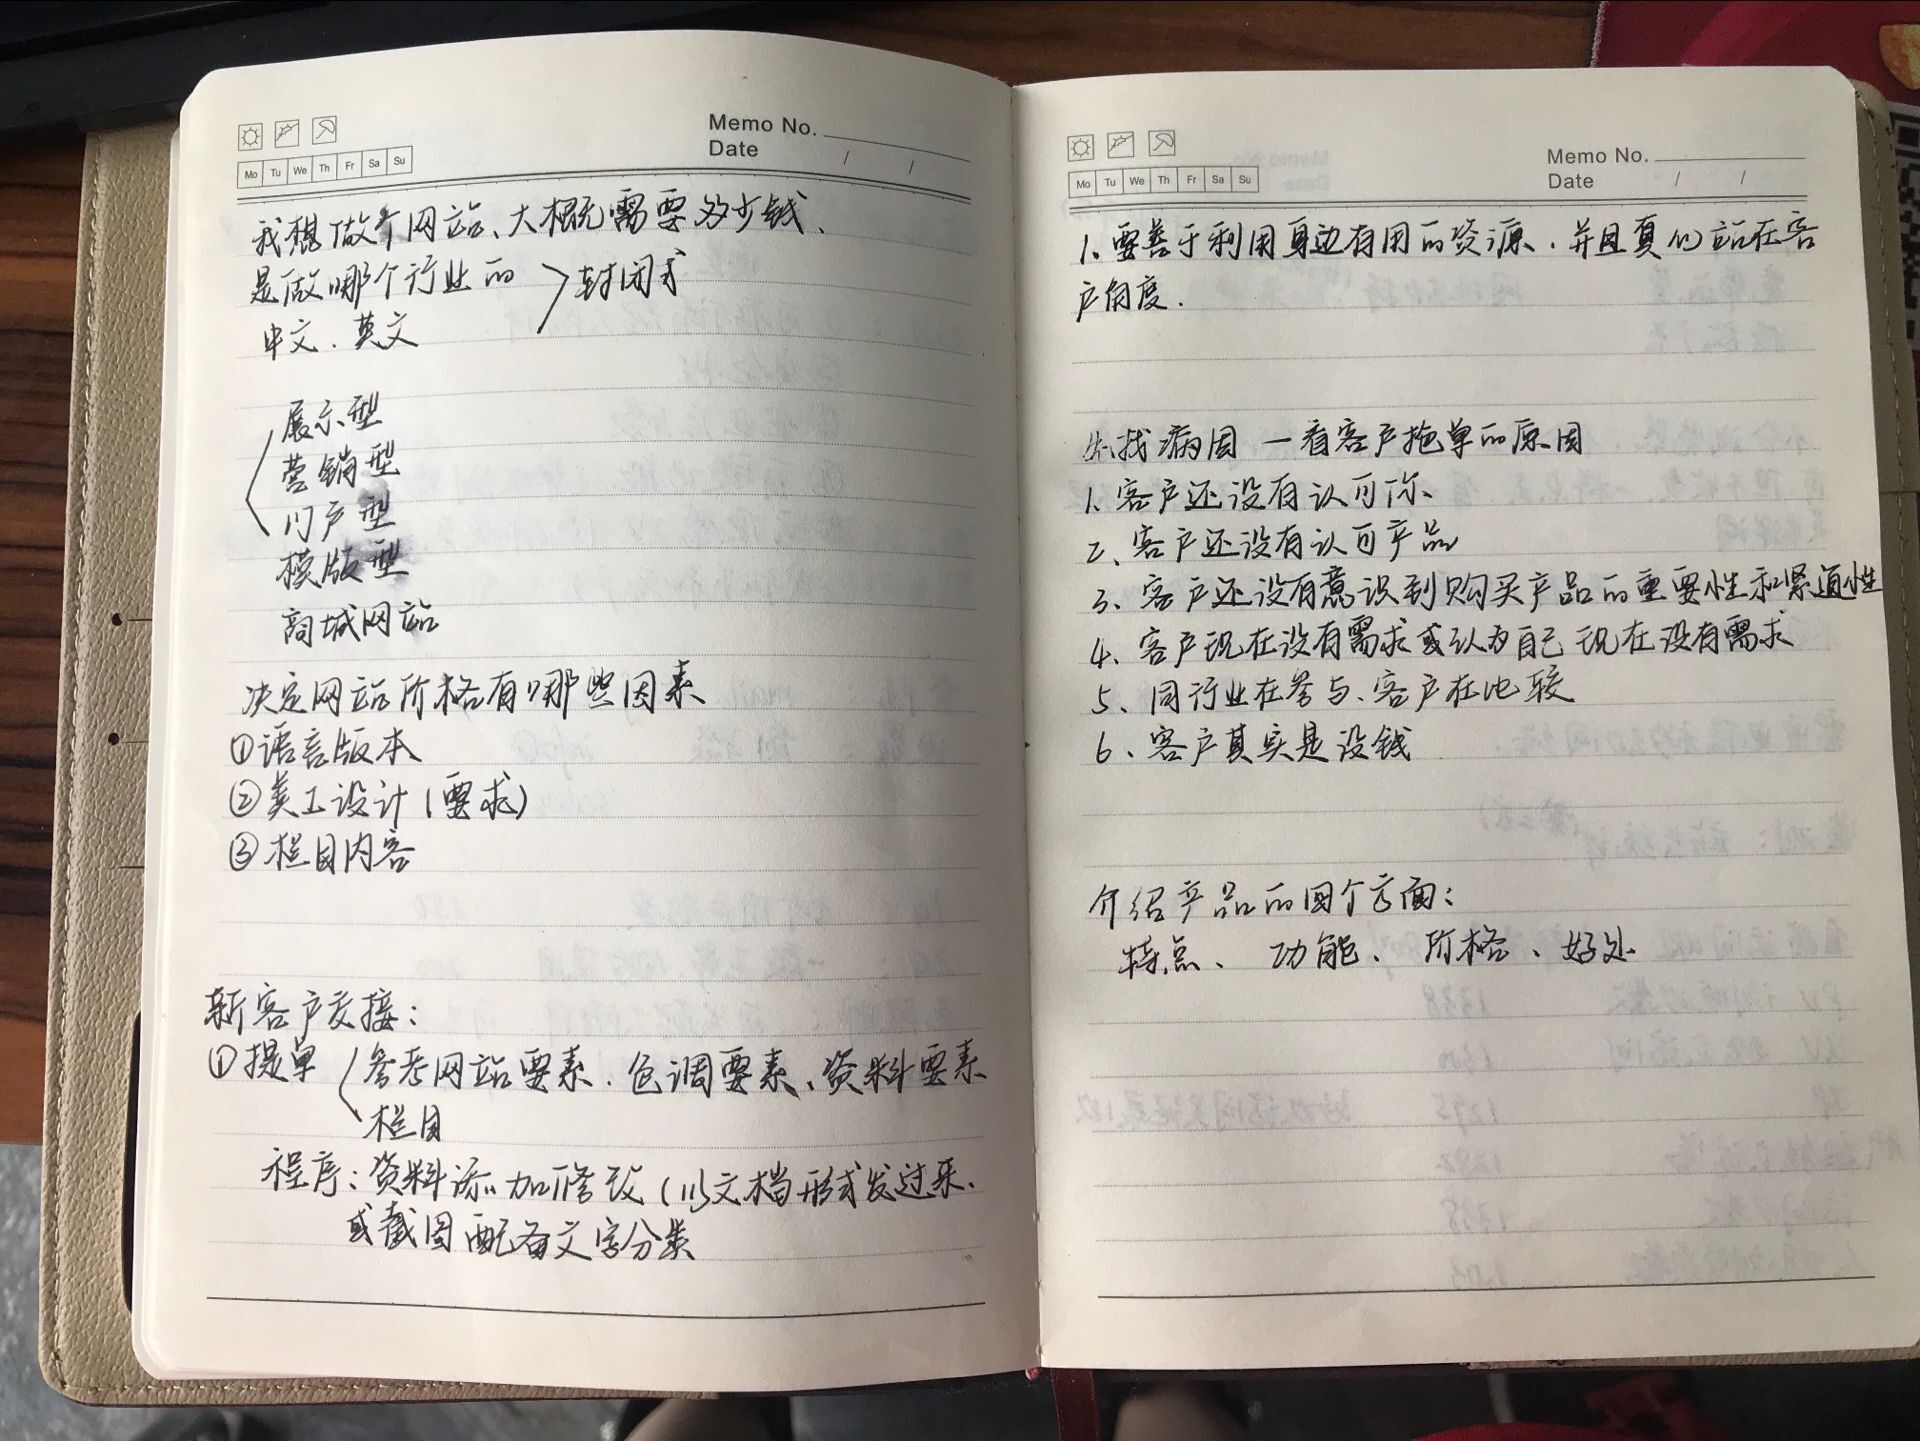 Memo No.
Date / /
Mo Tu We Th Fr Sa Su
我想做个网站、大概需要多少钱、
是做哪个行业的
封闭式
中文、英文
展示型
营销型
门户型
模版型
商城网站
决定网站价格有哪些因素
①语言版本
②美工设计(要求)
③栏目内容
新客户交接:
①提单 参考网站要素、色调要素、资料要素
栏目
程序:资料添加修改(以文档形式发过来、
或截图配备文字分类
Memo No.
Date / /
Mo Tu We Th Fr Sa Su
1、要善于利用身边有用的资源、并且真心站在客
户角度.
找病因 一看客户拖单的原因
1、客户还没有认可你
2、客户还没有认可产品
3、客户还没有意识到购买产品的重要性和紧迫性
4、客户现在没有需求或认为自己现在没有需求
5、同行业在参与、客户在比较
6、客户其实是没钱
介绍产品的四个方面:
特点、 功能、 价格、好处